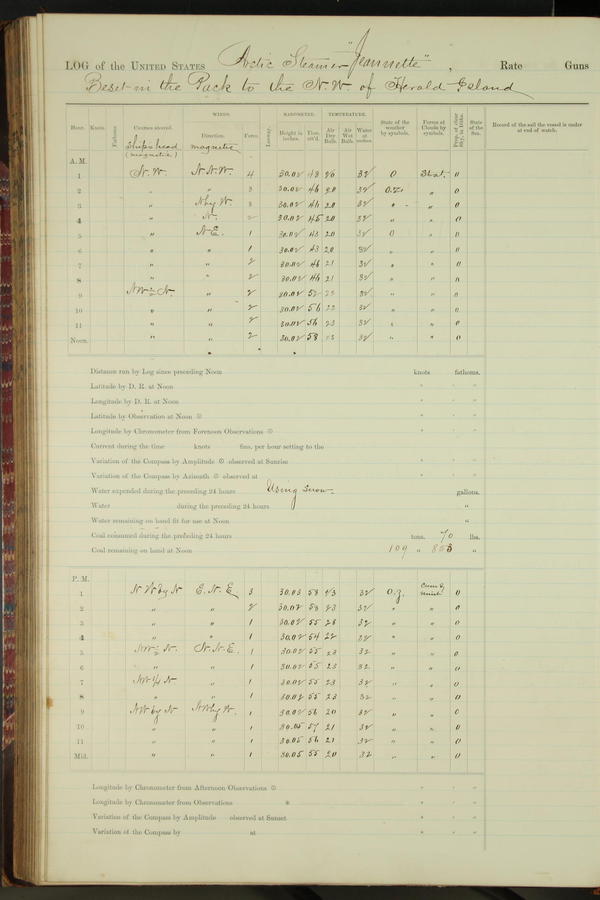 LOG of the UNITED STATES Arctic Steamer "Jeannette", Rate Guns
Beset in the Pack to the N.W. of Herald Island
WINDS. BAROMETER. TEMPERATURE.
Hour. Knots. Fathoms. Courses steered. Direction. Force. Leeway. Height in inches. Ther. att'd. Air Dry Bulb. Air Wet Bulb. Water at surface. State of the weather by symbols. Forms of Clouds by symbols. Prop. of clear sky, in 10ths. State of the Sea. Record of the sail the vessel is under at end of watch.
ship's head (magnetic) magnetic
A. M.
1 N.W. N.N.W. 4 30.02 48 26 32 O Strat. 0
2 " " 3 30.02 46 20 32 O.Z. " 0
3 N by W. 3 30.02 44 20 32 " " 0
4 " N. 2 30.02 45 20 32 " " 0
5 " N.E. 1 30.02 43 20 32 O " 0
6 " " 1 30.02 43 20 32 " " 0
7 " " 2 30.02 46 21 32 " " 0
8 " " 2 30.02 44 21 32 " " 0
9 " 2 30.02 52 23 32 " " 0
10 " " 2 30.02 56 23 32 " " 0
11 " " 2 30.02 56 23 32 " " 0
Noon. " " 2 30.02 58 23 32 " " 0
Distance run by Log since preceding Noon knots fathoms.
Latitude by D. R. at Noon ° ' "
Longitude by D. R. at Noon ° ' "
Latitude by Observation at Noon ☉ ° ' "
Longitude by Chronometer from Forenoon Observations ☉ ° ' "
Current during the time knots fms. per hour setting to the
Variation of the Compass by Amplitude ☉ observed at Sunrise ° ' "
Variation of the Compass by Azimuth ☉ observed at ° ' "
Water expended during the preceding 24 hours Using Snow. gallons.
Water during the preceding 24 hours "
Water remaining on hand fit for use at Noon "
Coal consumed during the preceding 24 hours tons. 70 lbs.
Coal remaining on hand at Noon 109 " 853 "
P. M.
1 N.W by N E.N.E 3 30.03 58 23 32 O.Z. 0
2 " " 2 30.02 58 23 32 " " 0
3 " " 1 30.02 55 28 32 " " 0
4 " " 1 30.02 54 22 32 " " 0
5 N.N.E. 1 30.02 55 23 32 " " 0
6 " " 1 30.02 55 23 32 " " 0
7 " 1 30.02 55 23 32 " " 0
8 " " 1 30.02 55 23 32 " " 0
9 NW by N NW by W. 1 30.02 56 20 32 " " 0
10 " " 1 30.05 57 21 32 " " 0
11 " " 1 30.05 56 21 32 " " 0
Mid. " " 1 30.05 55 20 32 " " 0
Longitude by Chronometer from Afternoon Observations ☉ ° ' "
Longitude by Chronometer from Observations * ° ' "
Variation of the Compass by Amplitude observed at Sunset ° ' "
Variation of the Compass by at ° ' "